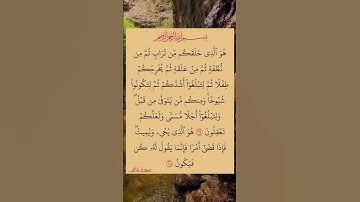 بسم الله الرحمن الرحيم
هُوَ ٱلَّذِى خَلَقَكُم مِّن تُرَابٍ ثُمَّ مِن
نُّطْفَةٍ ثُمَّ مِنْ عَلَقَةٍ ثُمَّ يُخْرِجُكُمْ
طِفْلًا ثُمَّ لِتَبْلُغُوٓا۟ أَشُدَّكُمْ ثُمَّ لِتَكُونُوا۟
شُيُوخًا ۚ وَمِنكُم مَّن يُتَوَفَّىٰ مِن قَبْلُ ۖ
وَلِتَبْلُغُوٓا۟ أَجَلًا مُّسَمًّى وَلَعَلَّكُمْ
تَعْقِلُونَ ۝ هُوَ ٱلَّذِى يُحْىِۦ وَيُمِيتُ ۖ
فَإِذَا قَضَىٰٓ أَمْرًا فَإِنَّمَا يَقُولُ لَهُۥ كُن
فَيَكُونُ ۝
سورة غافر